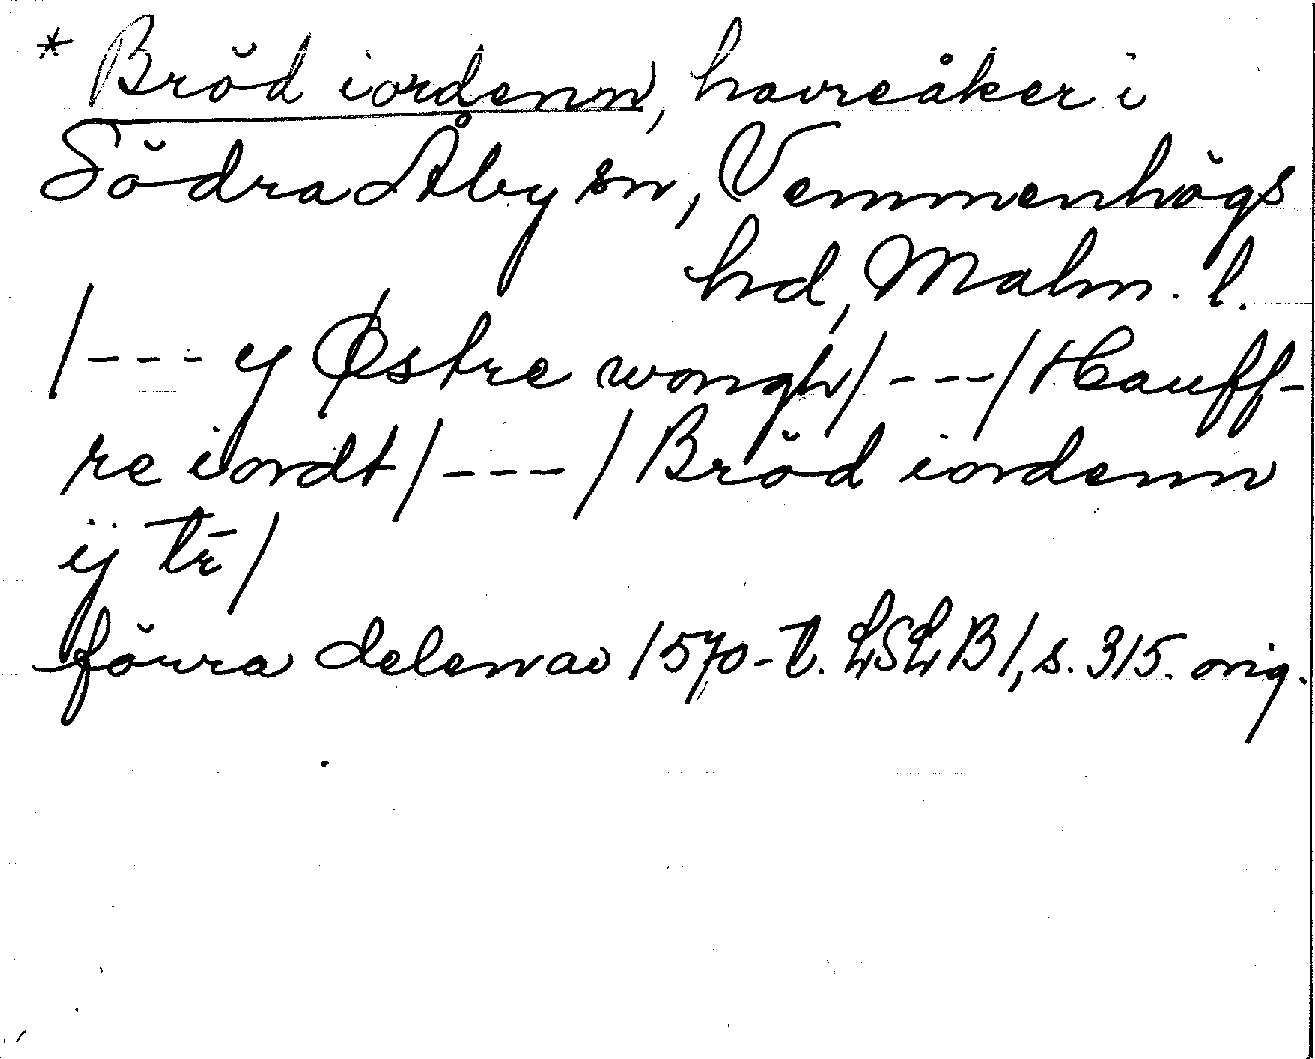 * Bröd iordenn, havreåker i
Södra Åby sn, Vemmenhögs
hd, Malm. l.
/--- y Østre wongh/---/Hauff-
re iordt/---/Bröd iordenn
ij tr̄/
förra delen av 1570-t. LSLB1, s. 315. orig.